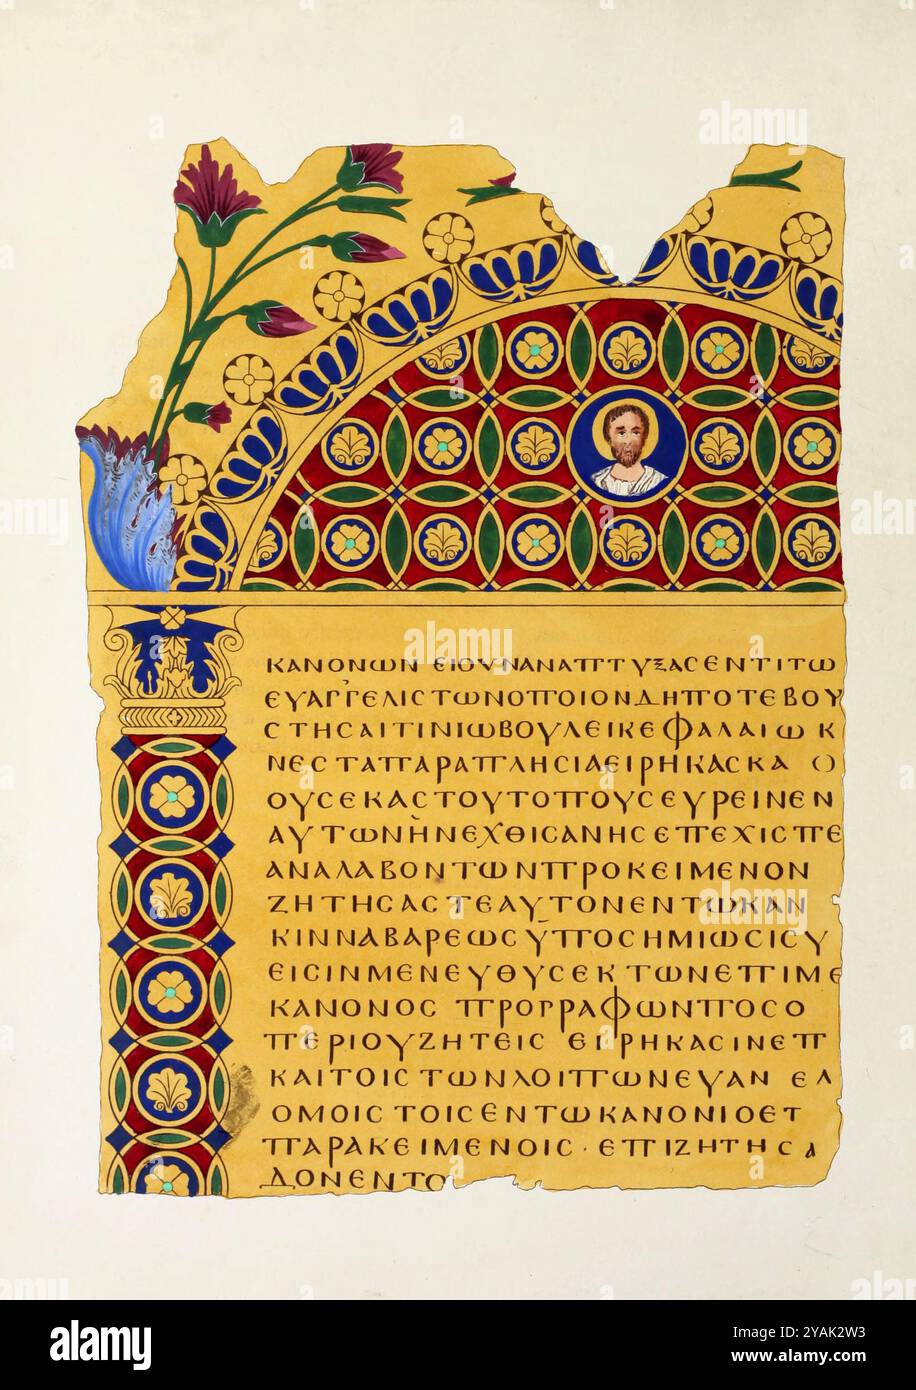 ΚΑΝΟΝΩΝ ΕΙΟΥΝΑΝΑΠΤΥΞΑϹΕΝΤΙΤΩ
ΕΥΑΓΓΕΛΙϹΤΩΝΟΠΟΙΟΝΔΗΠΟΤΕΒΟΥ
ϹΤΗϹΑΙΤΙΝΙΩΒΟΥΛΕΙΚΕΦΑΛΑΙΩΚ
ΝΕϹΤΑΠΑΡΑΠΛΗϹΙΑΕΙΡΗΚΑϹΚΑ Ο
ΟΥϹΕΚΑϹΤΟΥΤΟΠΟΥϹΕΥΡΕΙΝΕΝ
ΑΥΤΩΝῊΝΕΧΘΙϹΑΝΗϹΕΠΕΧΙϹΠΕ
ΑΝΑΛΑΒΟΝΤΩΝΠΡΟΚΕΙΜΕΝΟΝ
ΖΗΤΗϹΑϹΤΕΑΥΤΟΝΕΝΤΩΚΑΝ
ΚΙΝΝΑΒΑΡΕΩϹΥΠΟϹΗΜΙΩϹΙϹΥ
ΕΙϹΙΝΜΕΝΕΥΘΥϹΕΚΤΩΝΕΠΙΜΕ
ΚΑΝΟΝΟϹ ΠΡΟΓΡΑΦΩΝΠΟϹΟ
ΠΕΡΙΟΥΖΗΤΕΙϹ ΕΙΡΗΚΑϹΙΝΕΠ
ΚΑΙΤΟΙϹΤΩΝΛΟΙΠΩΝΕΥΑΝ ΕΛ
ΟΜΟΙϹΤΟΙϹΕΝΤΩΚΑΝΟΝΙΟΕΤ
ΠΑΡΑΚΕΙΜΕΝΟΙϹ·ΕΠΙΖΗΤΗϹΔ
ΔΟΝΕΝΤΟ
alamy
Image ID: 2YAK2W3
www.alamy.com